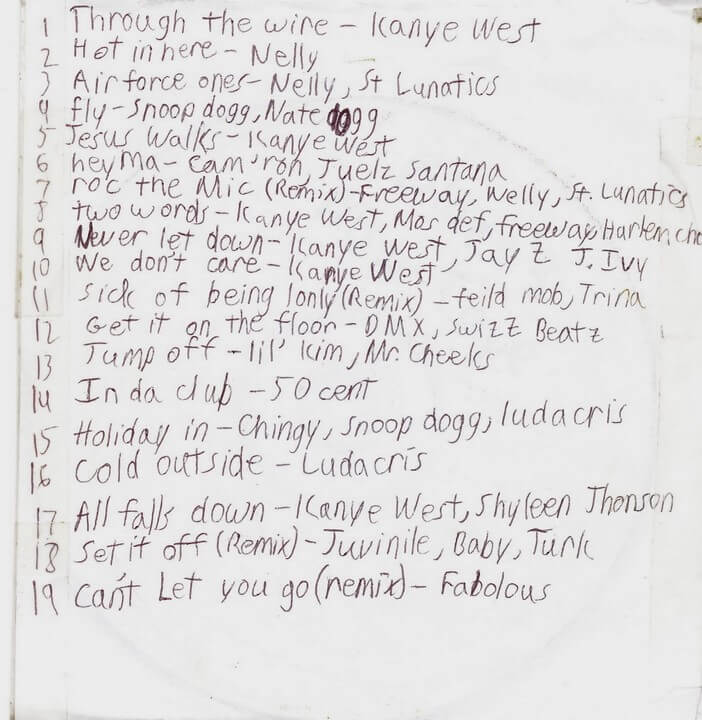 1 Through the wire - Kanye West
2 Hot in here - Nelly
3 Air force ones - Nelly, St Lunatics
4 fly - Snoop dogg, Nate dogg
5 Jesus Walks - Kanye West
6 hey Ma - Cam'ron, Juelz Santana
7 roc the Mic (Remix) - Freeway, Nelly, St. Lunatics
8 two words - Kanye West, Mos def, freeway, Harlem, cho
9 Never let down - Kanye West, Jay Z J. Ivy
10 We don't care - Kanye West
11 Sick of being lonly (Remix) - feild mob, Trina
12 Get it on the floor - DMX, Swizz Beatz
13 Jump off - lil' Kim, Mr. Cheeks
14 In da club - 50 cent
15 Holiday in - Chingy, Snoop dogg, ludacris
16 Cold outside - Ludacris
17 All falls down - Kanye West, Shyleen Jhonson
18 Set it off (Remix) - Juvinile, Baby, Turk
19 Can't Let you go (remix) - Fabolous